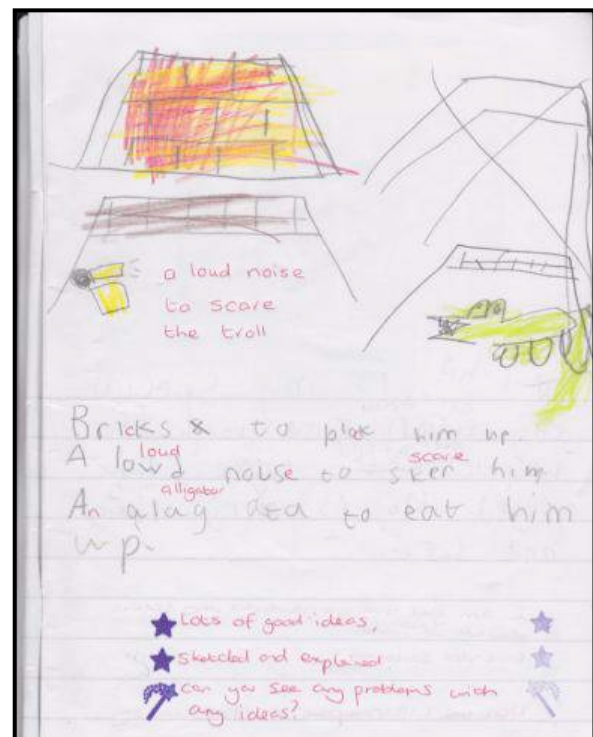 a loud noise
to scare
the troll
Bricks to plok him up.
loud scare
A lowd nouse to sker him
alligator
An alag ata to eat him
up.
Lots of good ideas,
Sketched and explained
can you see any problems with
any ideas?